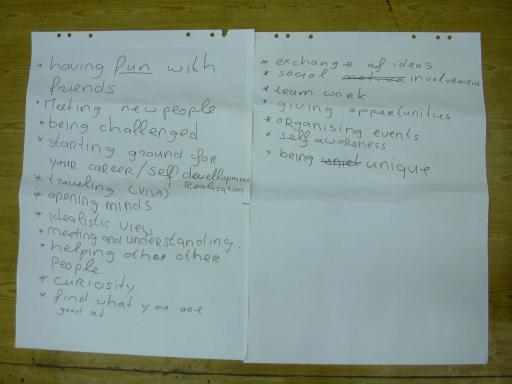 * having fun with
friends
* Meeting new people
* being challenged
* starting ground for
your career/self development
Realisation
* traveling (VISA)
* opening minds
* idealistic view
* meeting and understanding.
* helping other other
people.
* curiosity
* find what you are
good at
* exchange of ideas
* social involvement
* team work
* giving opportunities
* organising events
* self awareness
* being unique